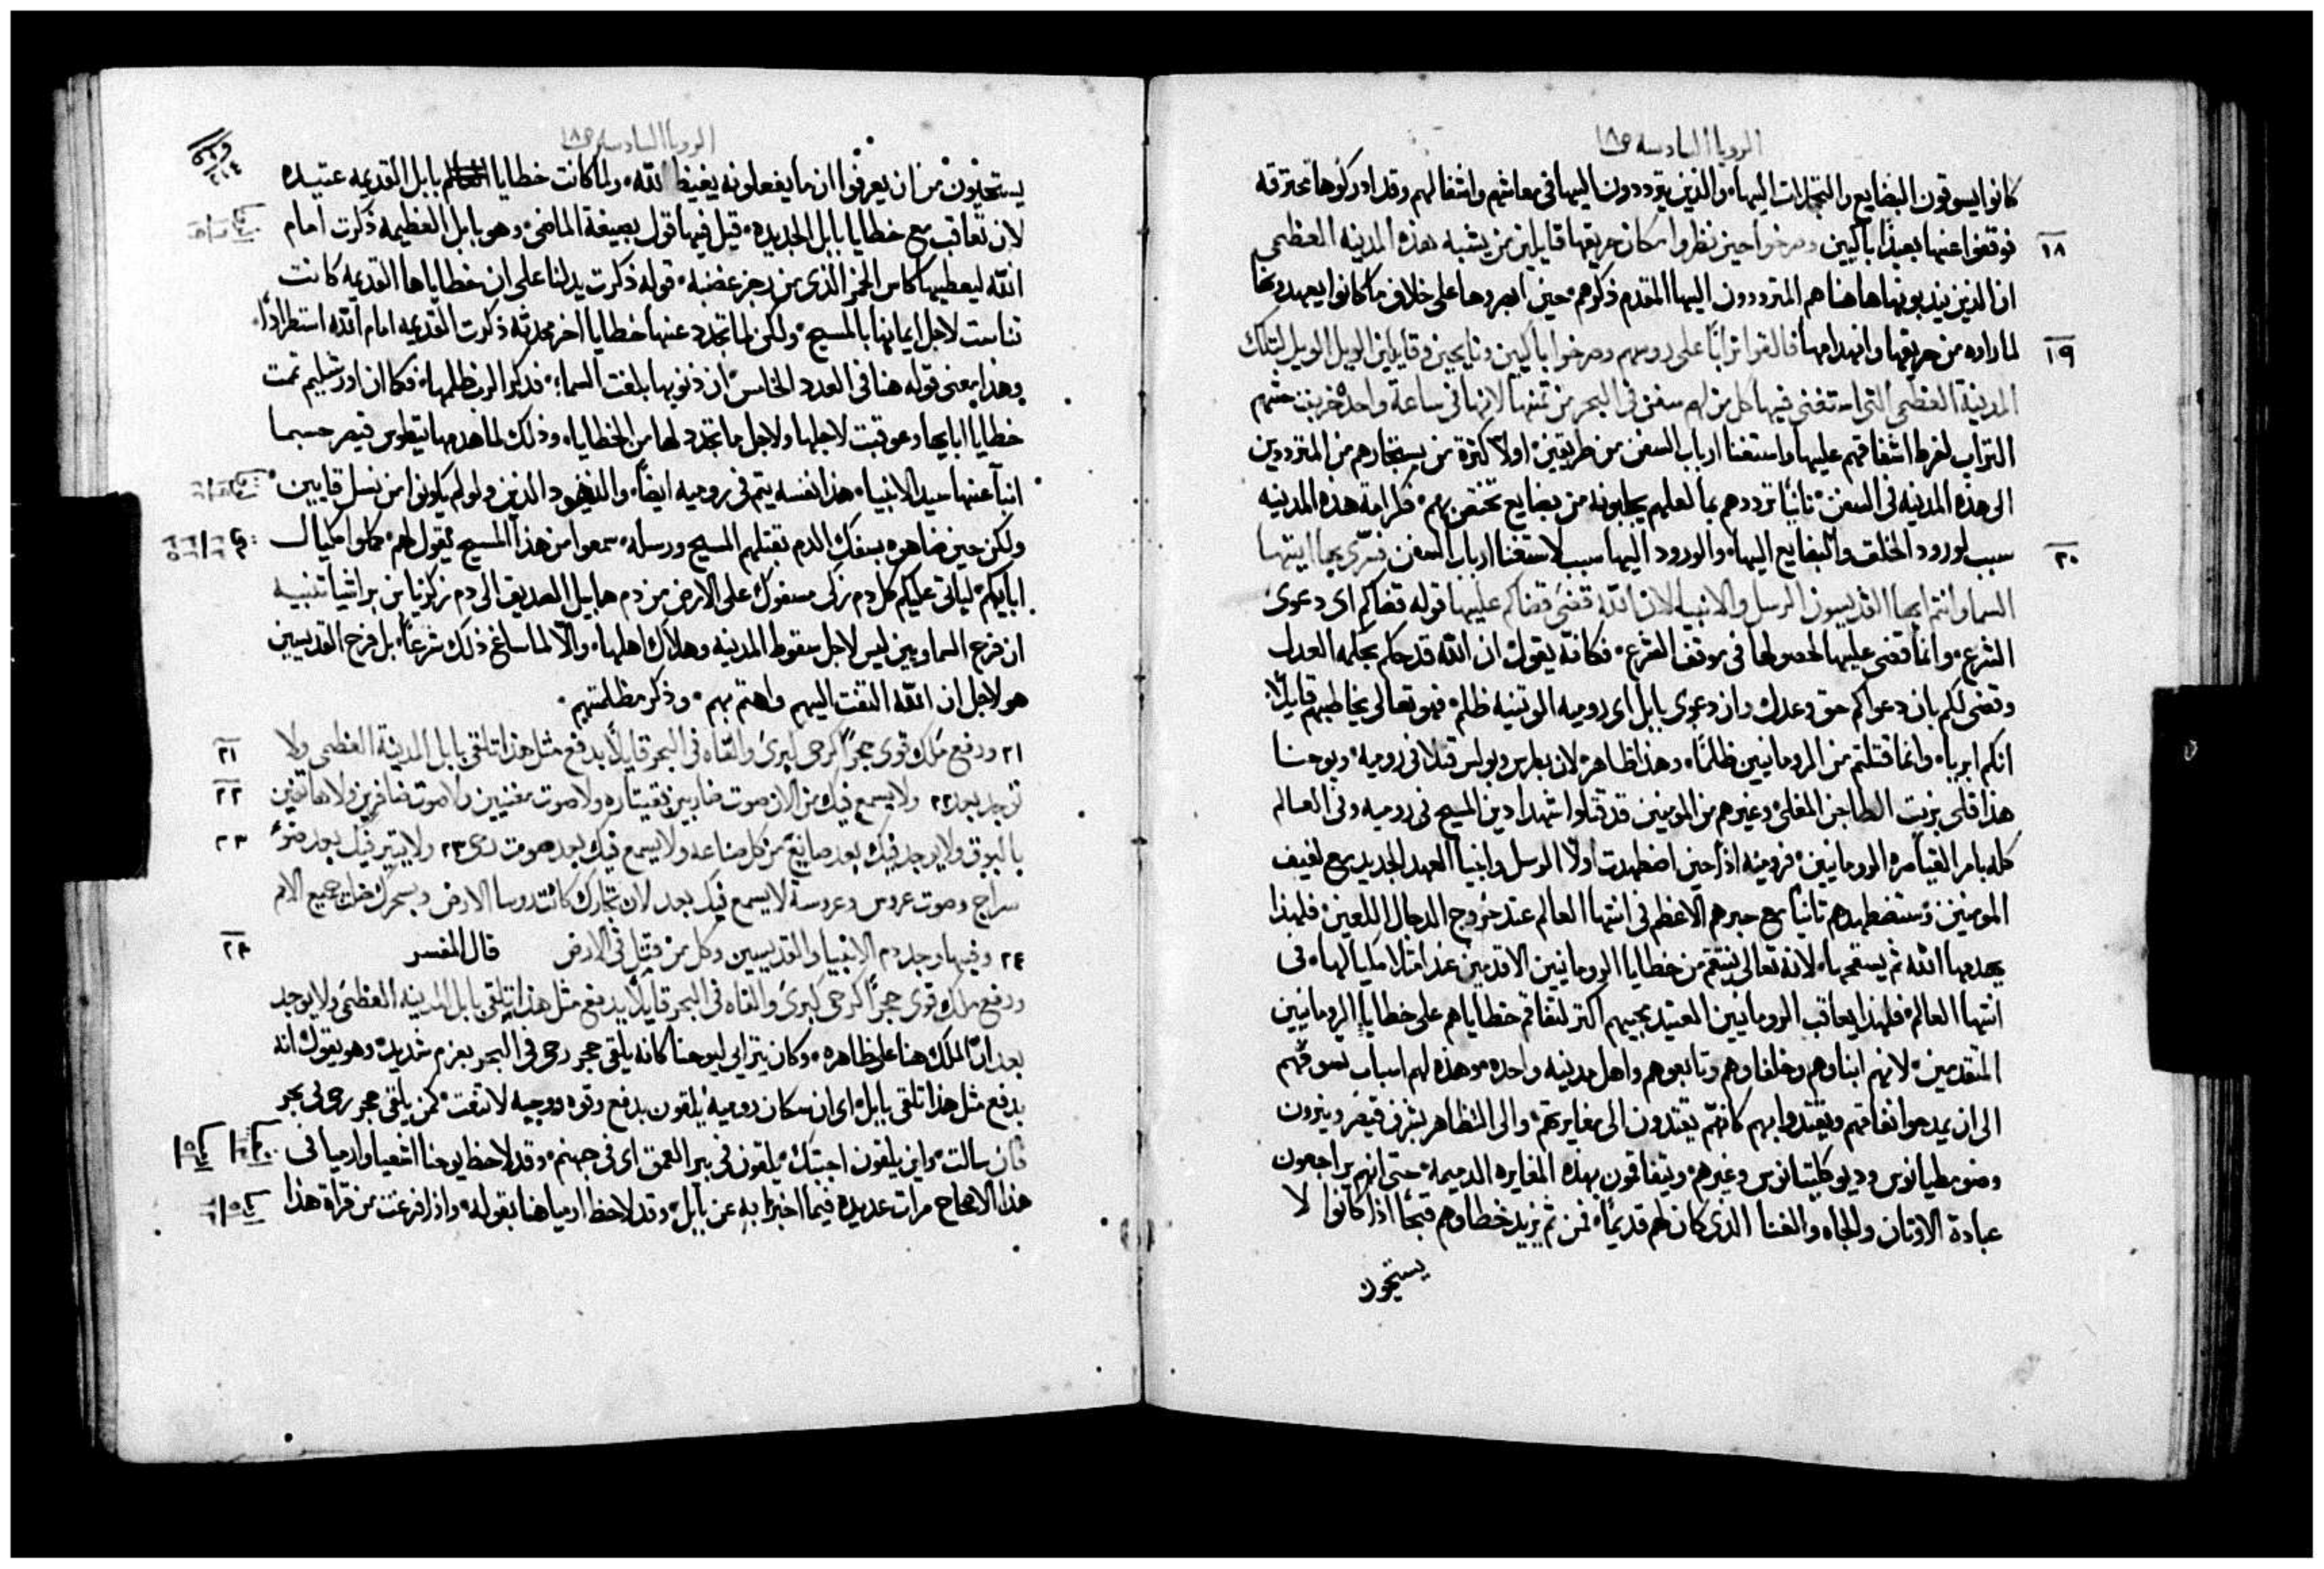 الرويا السادسه ص١٨
كانوا يسوقون البضايع والتجارات اليها، والذين يترددون اليها في معاشهم واشغالهم وقد ادركوها محترقه
١٨
فوقفوا عنها بعيدًا باكيين وصرخوا حين نظروا مكان حريقها قايلين من يشبه هذه المدينه العظمي
ان الذين يندبونها هاهنا هم المترددون اليها المقدم ذكرهم حين ابصروها على خلاف ما كانوا يعهدونها
١٩
لما راوه من حريقها وانهدامها فالقوا ترابًا على روسهم وصرخوا باكيين ونايحين وقايلين الويل الويل لتلك
المدينة العظمى التي استغنى فيها كل من لهم سفن في البحر من ثمنها لانها في ساعة واحدة خربت حثيهم
التراب لفرط اشفاقهم عليها واستغنا ارباب السفن من طريقين، اولا كثرة من يستجارهم من المترددين
الى هذه المدينه في السفن، ثانيًا ترددهم بما لعلهم يجلبونه من بضايع تختص بهم، فكرامة هذه المدينه
٢٠
سبب لورود الخلق والبضايع اليها، والورود اليها سبب لاستغنا ارباب السفن فسرّي بها ايتها
السما وانتم ايها القديسون الرسل والانبيا لان الله قضى قضاكم عليها قوله قضاكم اي دعوى
الشرع، وانما قضى عليها لحصولها في موقف الشرع، فكانه يقول ان الله قد حاكم بحكمه العدل
وقضى لكم بان دعواكم حق وعدل وان دعوى بابل اي روميه الوثنيه ظلم، فهو تعالى يخاطبهم قايلًا
انكم ابريا، وانما قتلتم من الرومانيين ظلمًا، وهذا ظاهر، لان بطرس وبولس قتلا في روميه، ويوحنا
هذا قلي بزيت الطاجن المغلي، وغيرهم من المومنين قد قتلوا شهدا دين المسيح في روميه وفي العالم
كله بامر القياصره الرومانيين، فروميه اذا حين اضطهدت اولًا الرسل وانبيا العهد الجديد مع لفيف
المومنين، وستضطهدهم ثانيًا مع حبرهم الاعظم في انتها العالم عند خروج الدجال اللعين، فلهذا
يهدمها الله ثم يستقحها، لانه تعالى ينتقم من خطايا الرومانيين الاقدمين عند امتلا مكيالها، في
انتها العالم، فلهذا يعاقب الرومانيين العتيد مجيهم اكثر لتفاقم خطاياهم على خطايا الرومانيين
المتقدمين، لانهم ابناوهم وخلفاوهم وتابعوهم واهل مدينه واحده، وهذه لهم اسباب تسوقهم
الى ان يمدحوا نفاقهم ويقتدوا بهم كانهم يقتدون الى مغايرتهم، والى التظاهر بشرف قيصر ونيرون
وضومطيانوس وديوكلتيانوس وغيرهم، ويتفاقمون بهذه المغايره الدميمه، حتى انهم يراجعون
عبادة الاوثان والجاه والغنا الذي كان لهم قديمًا، فمن ثم يزيد خطاوهم قبحًا اذا كانوا لا
يستحيون
الرويا السادسه ص١٨
يستحيون من ان يعرفوا ان ما يفعلونه يغيظ الله، ولما كانت خطايا بابل القديمه عتيده
لان تعاقب مع خطايا بابل الجديده، قيل فيها قول بصيغة الماضي، وهو بابل العظيمه ذكرت امام
الله ليعطيها كاس الخمر الذي من رجز غضبه، قوله ذكرت يدلنا على ان خطاياها القديمه كانت
تناست لاجل ايمانها بالمسيح، ولكن لما تجدد عنها خطايا اخر محدثه ذكرت القديمه امام الله استطرادًا،
وهذا معنى قوله هنا في العدد الخامس، ان ذنوبها بلغت السما، فذكر الرب ظلمها، فكما ان اورشليم تمت
خطايا ابايها وعوقبت لاجلها ولاجل ما تجدد لها من الخطايا، وذلك لما هدمها تيطوس قيصر حسبما
انبا عنها سيد الانبيا، هذا نفسه يتم في روميه ايضًا، واليهود الذين ولو لم يكونوا من نسل قايين،
ولكن حين ضاهوه بسفك الدم بقتلهم المسيح ورسله، سمعوا من هذا المسيح يقول لهم، كملوا مكيال
ابايكم، لياتي عليكم كل دم زكي مسفوك على الارض من دم هابيل الصديق الى دم زكريا بن براشيا تنبيه
ان فرح السماويين ليس لاجل سقوط المدينه وهلاك اهلها، والّا لما ساغ ذلك شرعًا، بل فرح القديسين
هو لاجل ان الله التفت اليهم واهتم بهم، وذكر مظلمتهم.
٢١
٢١ ورفع ملك قوي حجرًا كرحى كبرى والقاه في البحر قايلًا بدفع مثل هذا تلقى بابل المدينة العظمى ولا
٢٢
توجد بعد ٢٢ ولا يسمع فيك من الان صوت ضاربين بقيثاره ولا صوت مغنيين ولا صوت ضافرين ولا هاتفين
٢٣
بالبوق ولا يوجد فيك بعد صانع من كل صناعه ولا يسمع فيك بعد صوت رحى ٢٣ ولا ينير فيك بعد ضوء
سراج وصوت عروس وعروسة لا يسمع فيك بعد لان تجارك كانت روسا الارض وبسحرك ضلت جميع الامم
٢٤
٢٤ وفيها وجد دم الانبيا والقديسين وكل من قتل في الارض قال المفسر
ورفع ملك قوي حجرًا كرحى كبرى والقاه في البحر قايلًا بدفع مثل هذا تلقى بابل المدينه العظمى ولا يوجد
بعد انّ الملك هنا على ظاهره، وكان يتراى ليوحنا كانه يلقي حجر رحى في البحر بعزم شديد، وهو يقول انه
بدفع مثل هذا تلقى بابل، اي ان سكان روميه يلقون بدفع وقوه ووجيه لاتفت، كمن يلقي حجر رحى في بحر
فان سالت، واين يلقون اجبتك، يلقون في بير العمق اي في جهنم، وقد لاحظ يوحنا اشعيا وارميا في
هذا الاصحاح مرات عديده فيما اخبرا به عن بابل، وقد لاحظ ارميا هنا بقوله، واذا فرغت من قراة هذا